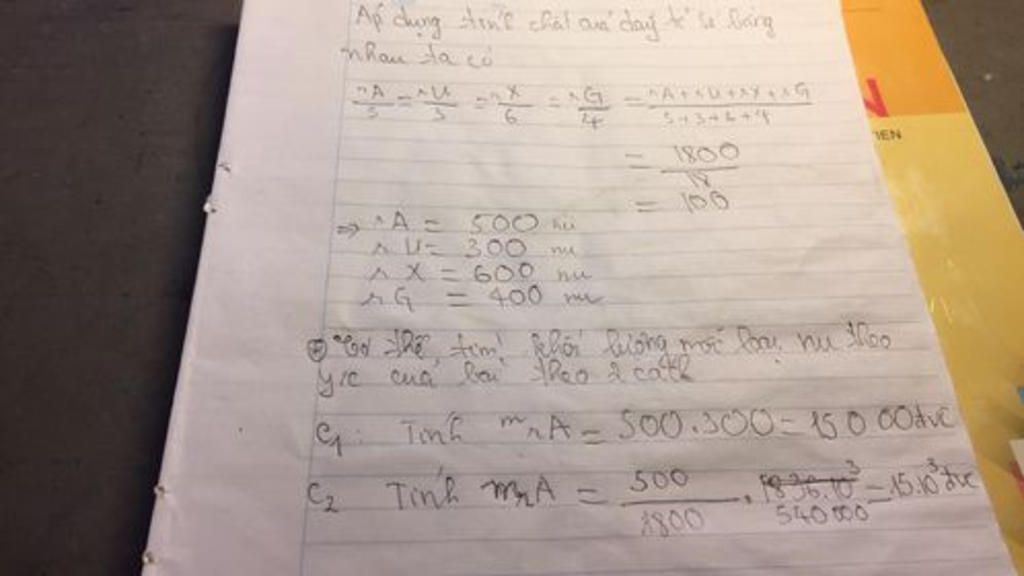 Áp dụng tính chất của dãy tỉ lệ bằng
nhau ta có
rA/5 = rU/3 = rX/6 = rG/4 = rA+rU+rX+rG/5+3+6+4
= 1800/18
= 100
⇒ rA = 500 nu
rU = 300 nu
rX = 600 nu
rG = 400 nu
N
IEN
Có thể tính khối lượng mỗi loại nu theo
y/c của bài theo 2 cách
C1: Tính mrA = 500.300 = 15 0 00 đvC
C2 Tính mrA = 500/1800 . 540 000 = 15.10³ đvC